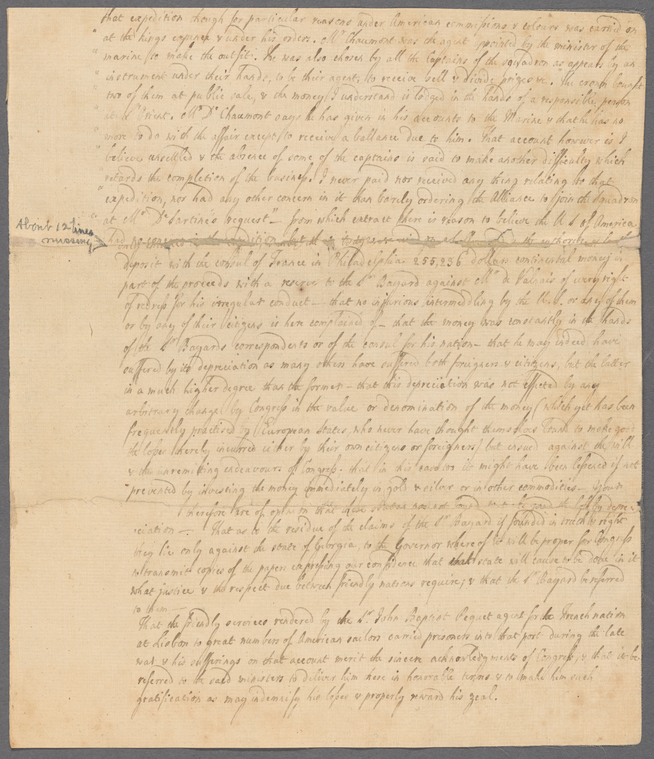 that expedition though for particular reasons under American commissions & colours was carried on
" at the king's expence & under his orders. Mr Chaumont was the agent appointed by the minister of the
" marine to make the outfit. He was also chosen by all the captains of the squadron as appears by an
" instrument under their hands, to be their agent, to receive sell & divide prizes &c. The crown bought
" two of them at public sale, & the money I understand is lodged in the hands of a responsible person
" at L'Orient. Mr De Chaumont says he has given in his accounts to the Marine & that he has no
" more to do with the affair except to receive a ballance due to him. That account however is I
" believe unsettled & the absence of some of the captains is said to make another difficulty which
" retards the completion of the business. I never paid nor received any thing relating to that
" expedition, nor had any other concern in it than barely ordering the Alliance to join the squadron
" at Mr De Sartine's request" — from which extract there is reason to believe the U.S. of America
About 12 lines
missing
had no concern in the expedition, but that
deposit with the consul of France in Philadelphia 255,236 dollars continental money in
part of the proceeds with a reserve to the Sr Bayard against Mr de Valnais of every right
of redress for his irregular conduct — that no injurious intermeddling by the U.S. or any of them
or by any of their citizens is here complained of — that the money was constantly in the hands
of the Sr Bayards correspondents or of the consul for his nation — that he may indeed have
suffered by its depreciation as many others have suffered both foreigners & citizens, but the latter
in a much higher degree than the former — that this depreciation was not effected by any
arbitrary change by Congress in the value or denomination of the money (which yet has been
frequently practised by European States, who never have thought themselves bound to make good
the losses thereby incurred either by their own citizens or foreigners) but ensued against the will
& the unremitting endeavours of Congress. that in this and
it might have been lessened if not
prevented by investing the money immediately in gold & silver or in other commodities —
therefore are of opinion that these states
to make good the loss by depre-
ciation —. That as to the residue of the claims of the Sr Bayard if founded in
right
they lie only against the state of Georgia, to the Governor whereof it will be proper for Congress
to transmit copies of the papers expressing our confidence that that state will cause to be done in it
what justice & the respect due between friendly nations require, & that the Sr Bayard be referred
to them.
That the friendly services rendered by the Sr John Baptist Pequet agent for the French nation
at Lisbon to great numbers of American sailors carried prisoners into that port during the late
war & his sufferings on that account merit the sincere acknowledgments of Congress, & that it be
referred to the said ministers to deliver him these in honorable terms & to make him such
gratification as may indemnify his losses & properly reward his zeal.